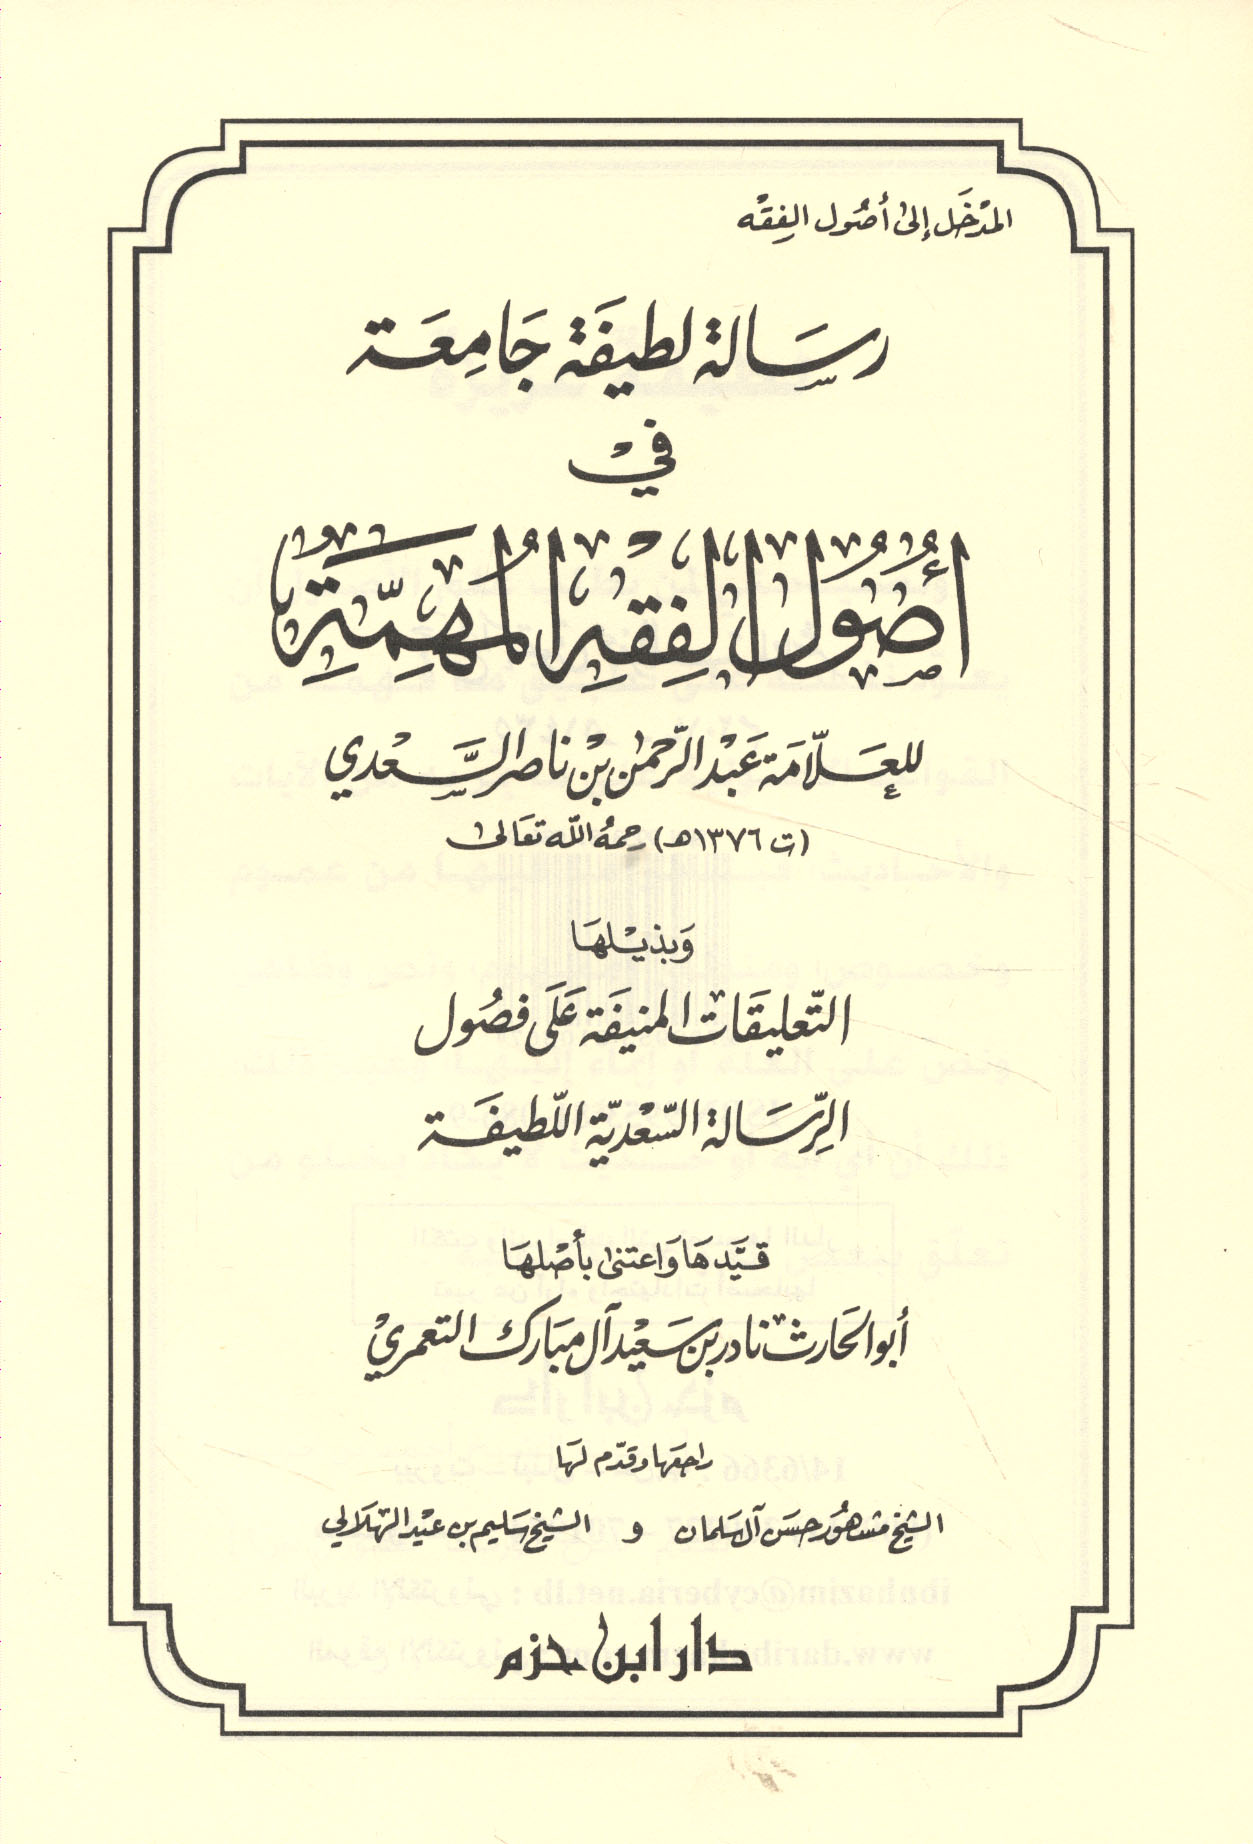 المَدْخَل إلىٰ أصُول الفِقْه
رسَالة لطيفَة جَامِعَة
في
أصُول الفِقهِ المُهِمَّةِ
للعَلّامَة عَبْد الرّحمٰن بْن ناصر السَّعْدي
(ت ١٣٧٦هـ) رحمهُ اللّه تعَالىٰ
وَبذيْلهَا
التّعليقَات المنيفَة عَلَى فصُول
الرِّسَالة السّعْديّة اللّطيفَة
قيَّدهَا وَاعتنىٰ بأصْلهَا
أبو الحَارث نادر بن سَعيْد آل مبَارك التعمريْ
راجعَها وقدّم لهَا
الشيْخ مشهُور حسَن آل سَلمان و الشيْخ سَليم بن عيْد الهْلَالي
دار ابن حزم